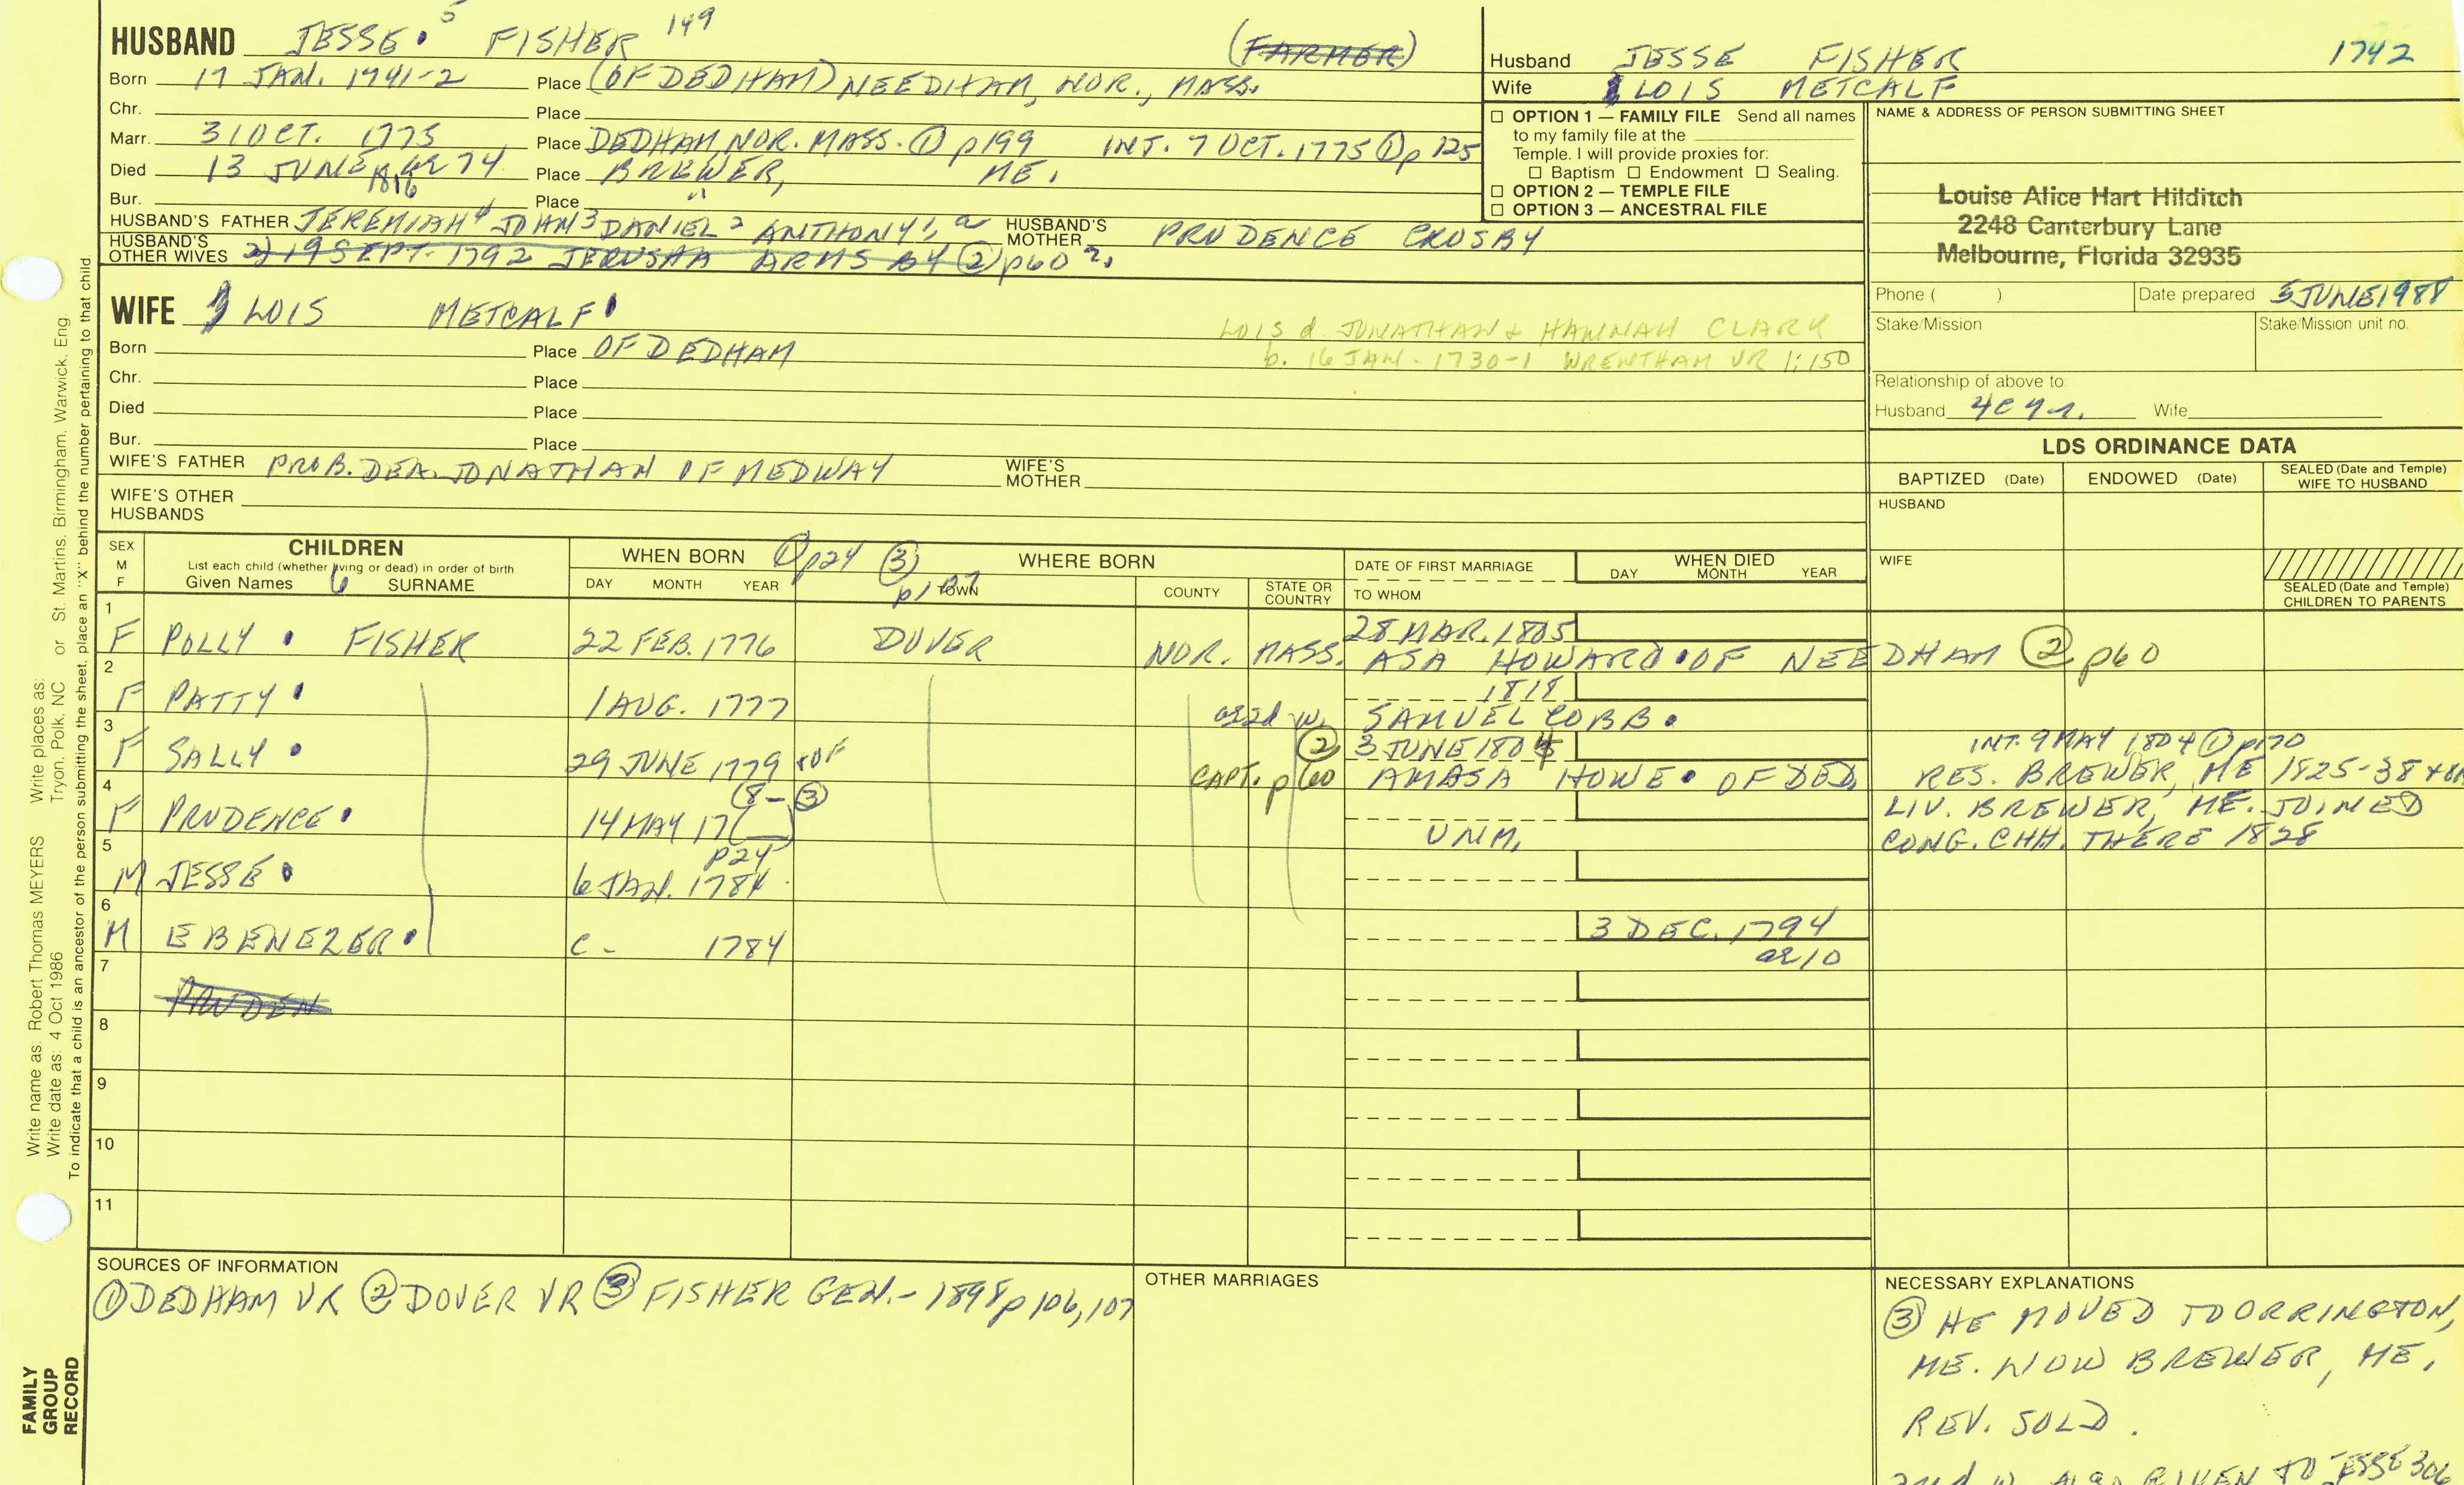 HUSBAND JESSE 5 FISHER 149 (FARMER)
Born 17 JAN. 1741-2 Place (OF DEDHAM) NEEDHAM, NOR., MASS.
Chr. Place
Marr. 31 OCT. 1775 Place DEDHAM, NOR. MASS. ① p199 INT. 7 OCT. 1775 ① p 125
Died 13 JUNE 1816 ae 74 Place BREWER, ME.
Bur. Place "
HUSBAND'S FATHER JEREMIAH 4 JOHN 3 DANIEL 2 ANTHONY 1, 2 HUSBAND'S MOTHER PRUDENCE CROSBY
HUSBAND'S OTHER WIVES 2) 19 SEPT. 1792 JERUSHA ARMS BY ② p60 ?
WIFE LOIS METCALF
LOIS d. JONATHAN & HANNAH CLARK
Born Place OF DEDHAM
b. 16 JAN. 1730-1 WRENTHAM VR 1:150
Chr. Place
Died Place
Bur. Place
WIFE'S FATHER PROB. DEA. JONATHAN OF MEDWAY WIFE'S MOTHER
WIFE'S OTHER HUSBANDS
Husband JESSE FISHER 1742
Wife LOIS METCALF
☐ OPTION 1 — FAMILY FILE Send all names
to my family file at the
Temple. I will provide proxies for:
☐ Baptism ☐ Endowment ☐ Sealing.
☐ OPTION 2 — TEMPLE FILE
☐ OPTION 3 — ANCESTRAL FILE
NAME & ADDRESS OF PERSON SUBMITTING SHEET
Louise Alice Hart Hilditch
2248 Canterbury Lane
Melbourne, Florida 32935
Phone ( ) Date prepared 5 JUNE 1988
Stake/Mission Stake/Mission unit no.
Relationship of above to:
Husband 4C 4 r. Wife
LDS ORDINANCE DATA
BAPTIZED (Date) ENDOWED (Date) SEALED (Date and Temple) WIFE TO HUSBAND
HUSBAND
WIFE
SEALED (Date and Temple) CHILDREN TO PARENTS
SEX M F
CHILDREN
List each child (whether living or dead) in order of birth
Given Names 6 SURNAME
WHEN BORN ① p24 ③ p107
DAY MONTH YEAR
WHERE BORN
TOWN COUNTY STATE OR COUNTRY
DATE OF FIRST MARRIAGE
TO WHOM
WHEN DIED
DAY MONTH YEAR
1 F POLLY FISHER 22 FEB. 1776 DOVER NOR. MASS. 28 MAR. 1805
ASA HOWARD OF NEEDHAM ② p60
2 F PATTY 1 AUG. 1777 1818
as 2d w. SAMUEL COBB
3 F SALLY 29 JUNE 1779 ② 3 JUNE 1804 INT. 9 MAY 1804 ① p170
CAPT. p60 AMASA HOWE OF DED. RES. BREWER, ME 1825-38
4 F PRUDENCE 14 MAY 17( ) (8-③) UNM. LIV. BREWER, ME. JOINED
CONG. CHH. THERE 1828
5 M JESSE 6 JAN. 1784 p24
6 M EBENEZER C- 1784 3 DEC. 1794
ae 10
7 PRUDEN
8
9
10
11
SOURCES OF INFORMATION
① DEDHAM VR ② DOVER VR ③ FISHER GEN.- 1898 p 106, 107
OTHER MARRIAGES
NECESSARY EXPLANATIONS
③ HE MOVED TO ORRINGTON,
ME. NOW BREWER, ME.
REV. SOLD.
2nd w. ALSO GIVEN TO JESSE 306
Write name as: Robert Thomas MEYERS Write places as:
Write date as: 4 Oct 1986 Tryon, Polk, NC or St. Martins, Birmingham, Warwick, Eng
To indicate that a child is an ancestor of the person submitting the sheet, place an "X" behind the number pertaining to that child.
FAMILY
GROUP
RECORD